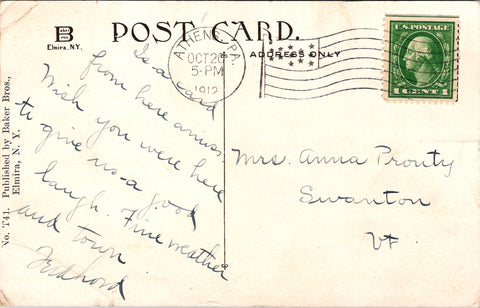 POST CARD.
Elmira, N.Y.
ADDRESS ONLY
ATHENS, PA.
OCT 20
5-PM
1912
U.S. POSTAGE
1 CENT 1
Is a card
from here
Wish you were here
to give us a good
laugh. Fine weather
and town
Mrs. Anna Prouty
Swanton
Vt.
No. T41. Published by Baker Bros.,
Elmira, N. Y.